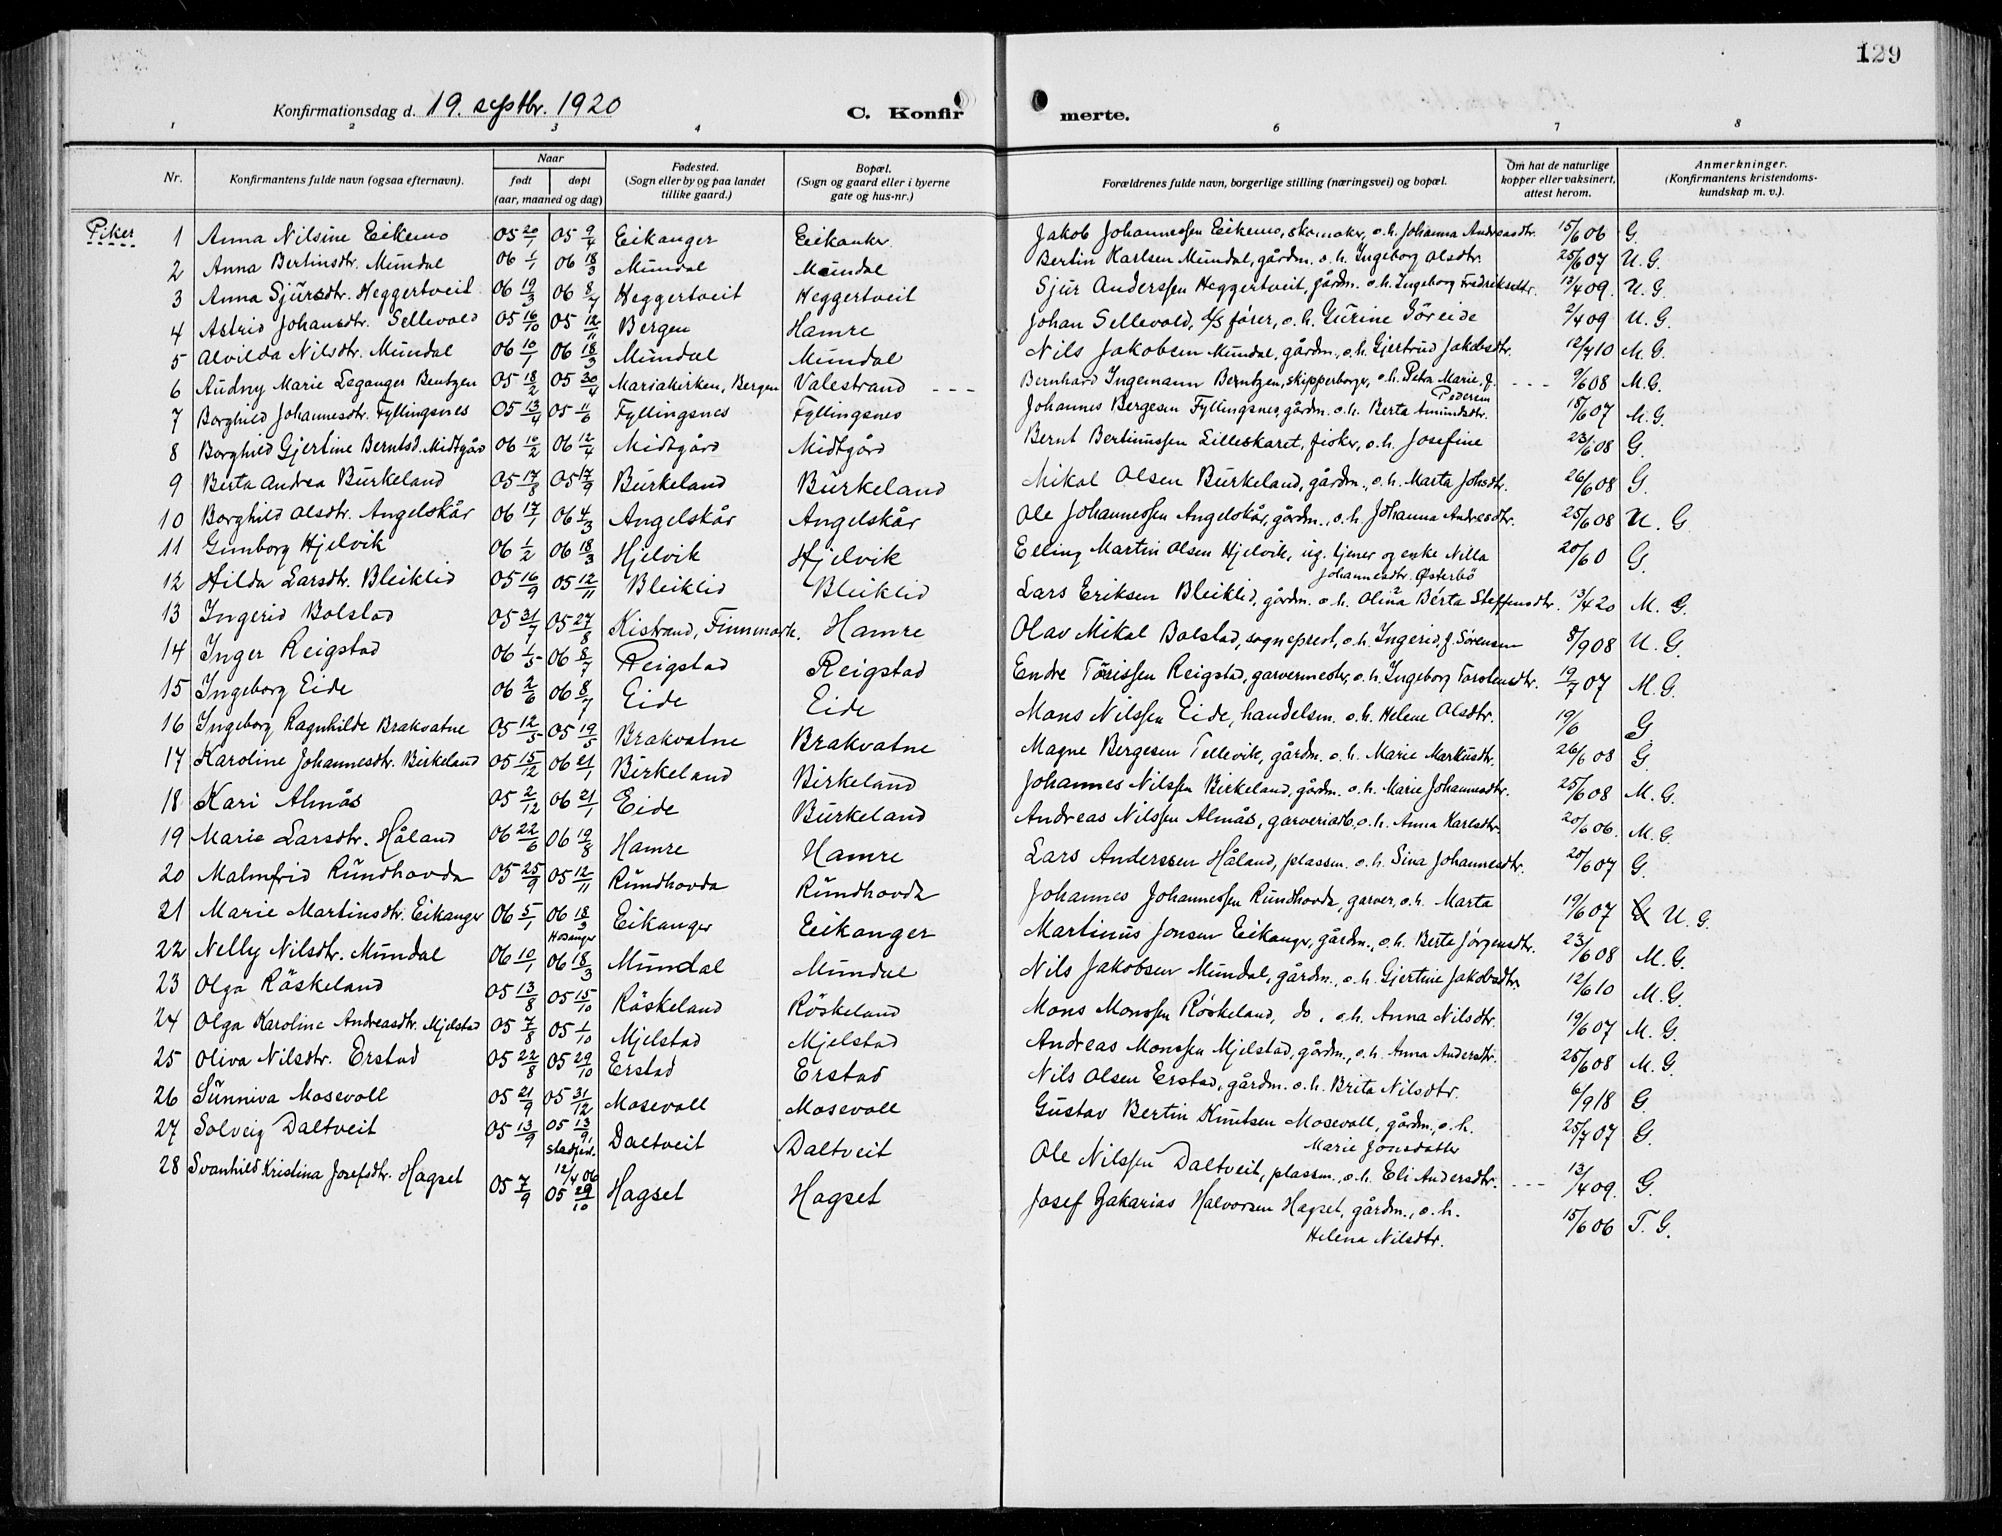 129
Konfirmationsdag d. 19. septbr. 1920 C. Konfir merte.
1 2 3 4 6 7 8
Nr. Konfirmantens fulde navn (ogsaa efternavn). Naar født døpt (aar, maaned og dag) Fødested. (Sogn eller by og paa landet tillike gaard.) Bopæl. (Sogn og gaard eller i byerne gate og hus-nr.) Forældrenes fulde navn, borgerlige stilling (næringsvei) og bopæl. Om hat de naturlige kopper eller vaksinert, attest herom. Anmerkninger. (Konfirmantens kristendoms-kundskap m. v.).
Piker
1 Anna Nilsine Eikemo 05 20/1 05 9/4 Eikanger Eikanker Jakob Johannessen Eikemo, skomaker, o.h. Johanna Andreasdtr. 15/6 06 G.
2 Anna Bertinsdtr. Mundal 06 1/1 06 18/3 Mundal Mundal Bertin Karlsen Mundal, gårdm. o.h. Ingeborg Olsdtr. 25/6 07 U. G.
3 Anna Sjursdtr. Heggertveit 06 19/3 06 8/7 Heggertveit Heggertveit Sjur Anderssen Heggertveit, gårdm. o.h. Ingeborg Fredriksdtr. 13/4 09. U. G.
4 Astrid Johansdtr. Sellevold 05 16/10 05 12/11 Bergen Hamre Johan Sellevold, d/s fører, o.h. Gurine Søreide 2/4 09 U. G.
5 Alvilda Nilsdtr. Mundal 06 10/1 06 18/3 Mundal Mundal Nils Jakobsen Mundal, gårdm., o.h. Gjertrud Jakobsdtr. 12/7 10 M. G.
6 Audny Marie Leganger Bentzen 05 18/2 05 30/4 Mariakirken, Bergen Valestrand - - - Bernhard Ingemann Berntzen, skipperborger, o.h. Petra Marie, f. Pedersen - - - 9/6 08 M. G.
7 Borghild Johannesdtr. Fyllingsnes 05 13/4 05 11/6 Fyllingsnes Fyllingsnes Johannes Bergesen Fyllingsnes, gårdm. o.h. Berta Amundsdtr. 18/6 07 M. G.
8 Borghild Gjertine Berntsd. Midtgård 06 10/2 06 12/4 Midtgård Midtgård Bernt Bertinussen Lilleskaret, fisker, o.h. Josefine 23/6 08 G.
9 Berta Andrea Burkeland 05 17/8 05 17/9 Burkeland Burkeland Mikal Olsen Burkeland, gårdm., o.h. Marta Johsdtr. 26/6 08 G.
10 Borghild Olsdtr. Angelskår 06 17/1 06 4/3 Angelskår Angelskår Ole Johannessen Angelskår, gårdm., o.h. Johanna Andresdtr. 25/6 08 U. G.
11 Gunborg Hjelvik 06 1/2 06 18/3 Hjelvik Hjelvik Elling Martin Olsen Hjelvik, ug. tjener og enke Nilla Johannesdtr. Østerbö 20/6 0 G.
12 Hilda Larsdtr. Bleiklid 05 16/9 05 12/11 Bleiklid Bleiklid Lars Eriksen Bleiklid, gårdm. o.h. Olina Berta Steffensdtr. 13/4 20 M. G.
13 Ingerid Bolstad 05 31/7 05 27/8 Kistrand, Finnmark. Hamre Olav Mikal Bolstad, sogneprest, o.h. Ingerid, f. Sørensen 8/9 08 U. G.
14 Inger Reigstad 06 1/5 06 8/7 Reigstad Reigstad Endre Torissen Reigstad, garvermester, o.h. Ingeborg Torstensdtr. 19/7 07 M. G.
15 Ingeborg Eide 06 2/6 06 8/7 Eide Eide Mons Nilssen Eide, handelsm. o.h. Helene Olsdtr. 19/6 G
16 Ingeborg Ragnhilde Brakvatne 05 12/5 05 19/5 Brakvatne Brakvatne Magne Bergesen Tellevik, gårdm. o.h. Marie Markusdtr. 26/6 08 G.
17 Karoline Johannesdtr. Birkeland 05 15/12 06 21/1 Birkeland Birkeland Johannes Nilssen Birkeland, gårdm. o.h. Marie Johannesdtr. 25/6 08 M. G.
18 Kari Almås 05 2/12 06 21/1 Eide Burkeland Andreas Nilssen Almås, garveriarb., o.h. Anna Karlsdtr. 20/6 06. M. G.
19 Marie Larsdtr. Håland 06 22/6 06 19/8 Hamre Hamre Lars Anderssen Håland, plassm. o.h. Sina Johannesdtr. 20/6 07 G.
20 Malmfrid Rundhovda 05 25/9 05 12/11 Rundhovda Rundhovda Johannes Johannessen Rundhovda, garver, o.h. Marta 19/6 07 U. G.
21 Marie Martinsdtr. Eikanger 06 5/1 06 18/3 Hosanger Eikanger Eikanger Martinus Jonsen Eikanger, gårdm., o.h. Berte Jørgensdtr. 23/6 08 M. G.
22 Nelly Nilsdtr. Mundal 06 10/1 06 18/3 Mundal Mundal Nils Jakobsen Mundal, gårdm., o.h. Gjertine Jakobsdtr. 12/6 10 M. G.
23 Olga Röskeland 05 13/8 05 15/10 Röskeland Röskeland Mons Monssen Röskeland, do, o.h. Anna Nilsdtr. 19/6 07 M. G.
24 Olga Karoline Andreasdtr. Mjelstad 05 7/8 05 1/10 Mjelstad Mjelstad Andreas Monssen Mjelstad, gårdm., o.h. Anna Andersdtr. 25/6 08 M. G.
25 Oliva Nilsdtr. Erstad 05 22/8 05 29/10 Erstad Erstad Nils Olsen Erstad, gårdm. o.h. Brita Nilsdtr. 6/9 18 G.
26 Sunniva Mosevoll 05 21/9 05 31/12 Mosevoll Mosevoll Gustav Bertin Knutsen Mosevoll, gårdm., o.h. Marie Jonsdatter 25/7 07 G.
27 Solveig Daltveit 05 13/9 05 13/9, stadfest. 12/4 06 Daltveit Daltveit Ole Nilssen Daltveit, plassm., o.h. Eli Andersdtr. - - - 13/4 09. G.
28 Svanhild Kristina Josefsdtr. Hagset 05 7/9 05 29/10 Hagset Hagset Josef Zakarias Halvorsen Hagset, gårdm., o.h. Helena Nilsdtr. 15/6 06 T. G.